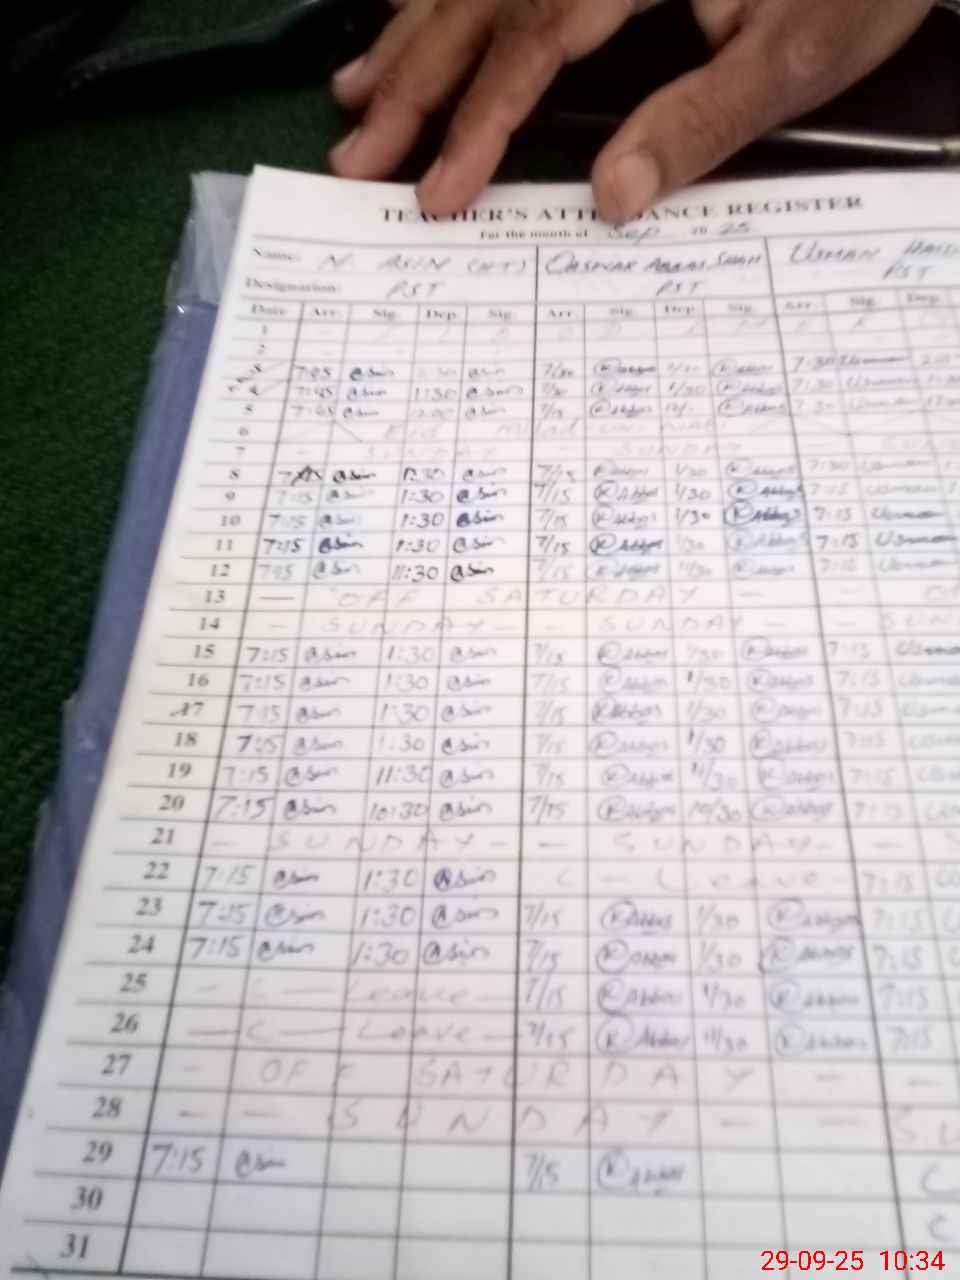 TEACHER'S ATTENDANCE REGISTER
For the month of Sep 20 25
Name: N. ASIN (HT) Abbas Shah USMAN
Designation: PST PST PST
Date Arr. Sig. Dep. Sig. Arr. Sig. Dep. Sig. Arr. Sig. Dep.
1
2
3 7:45 asin asin 7/30 K Abbas 1/30 K Abbas 7:30 Usman
4 7:45 asin 1:30 asin 7/30 K Abbas 1/30 K Abbas 7:30 Usman
5 7:45 asin 12:00 asin 7/15 K Abbas 12/- K Abbas 7:30 Usman
6 Eid Milad un Nabi
7 - SUNDAY - SUNDAY
8 asin 1:30 asin 7/15 K Abbas 1/30 K Abbas 7:30 Usman
9 7:15 asin 1:30 asin 7/15 K Abbas 1/30 K Abbas 7:15 Usman
10 7:15 asin 1:30 asin 7/15 K Abbas 1/30 K Abbas 7:15 Usman
11 7:15 asin 1:30 asin 7/15 K Abbas 1/30 K Abbas 7:15 Usman
12 7:15 asin 11:30 asin 7/15 K Abbas 11/30 K Abbas 7:15 Usman
13 — OFF SATURDAY —
14 - SUNDAY - - SUNDAY - - SUN
15 7:15 asin 1:30 asin 7/15 K Abbas 1/30 K Abbas 7:15 Usman
16 7:15 asin 1:30 asin 7/15 K Abbas 1/30 K Abbas 7:15 Usman
17 7:15 asin 1:30 asin 7/15 K Abbas 1/30 K Abbas 7:15 Usman
18 7:15 asin 1:30 asin 7/15 K Abbas 1/30 K Abbas 7:15 Usman
19 7:15 asin 11:30 asin 7/15 K Abbas 11/30 K Abbas 7:15 Usm
20 7:15 asin 10:30 asin 7/15 K Abbas 10/30 K Abbas 7:15
21 - SUNDAY - - SUNDAY - -
22 7:15 asin 1:30 asin C - Leave - 7:15
23 7:15 asin 1:30 asin 7/15 K Abbas 1/30 K Abbas 7:15
24 7:15 asin 1:30 asin 7/15 K Abbas 1/30 K Abbas 7:15
25 - C - Leave - 7/15 K Abbas 1/30 K Abbas 7:15
26 - C - Leave - 7/15 K Abbas 11/30 K Abbas 7:15
27 - OFF SATURDAY - -
28 - - SUNDAY - - SU
29 7:15 asin 7/15 K Abbas C
30 C
31
29-09-25 10:34